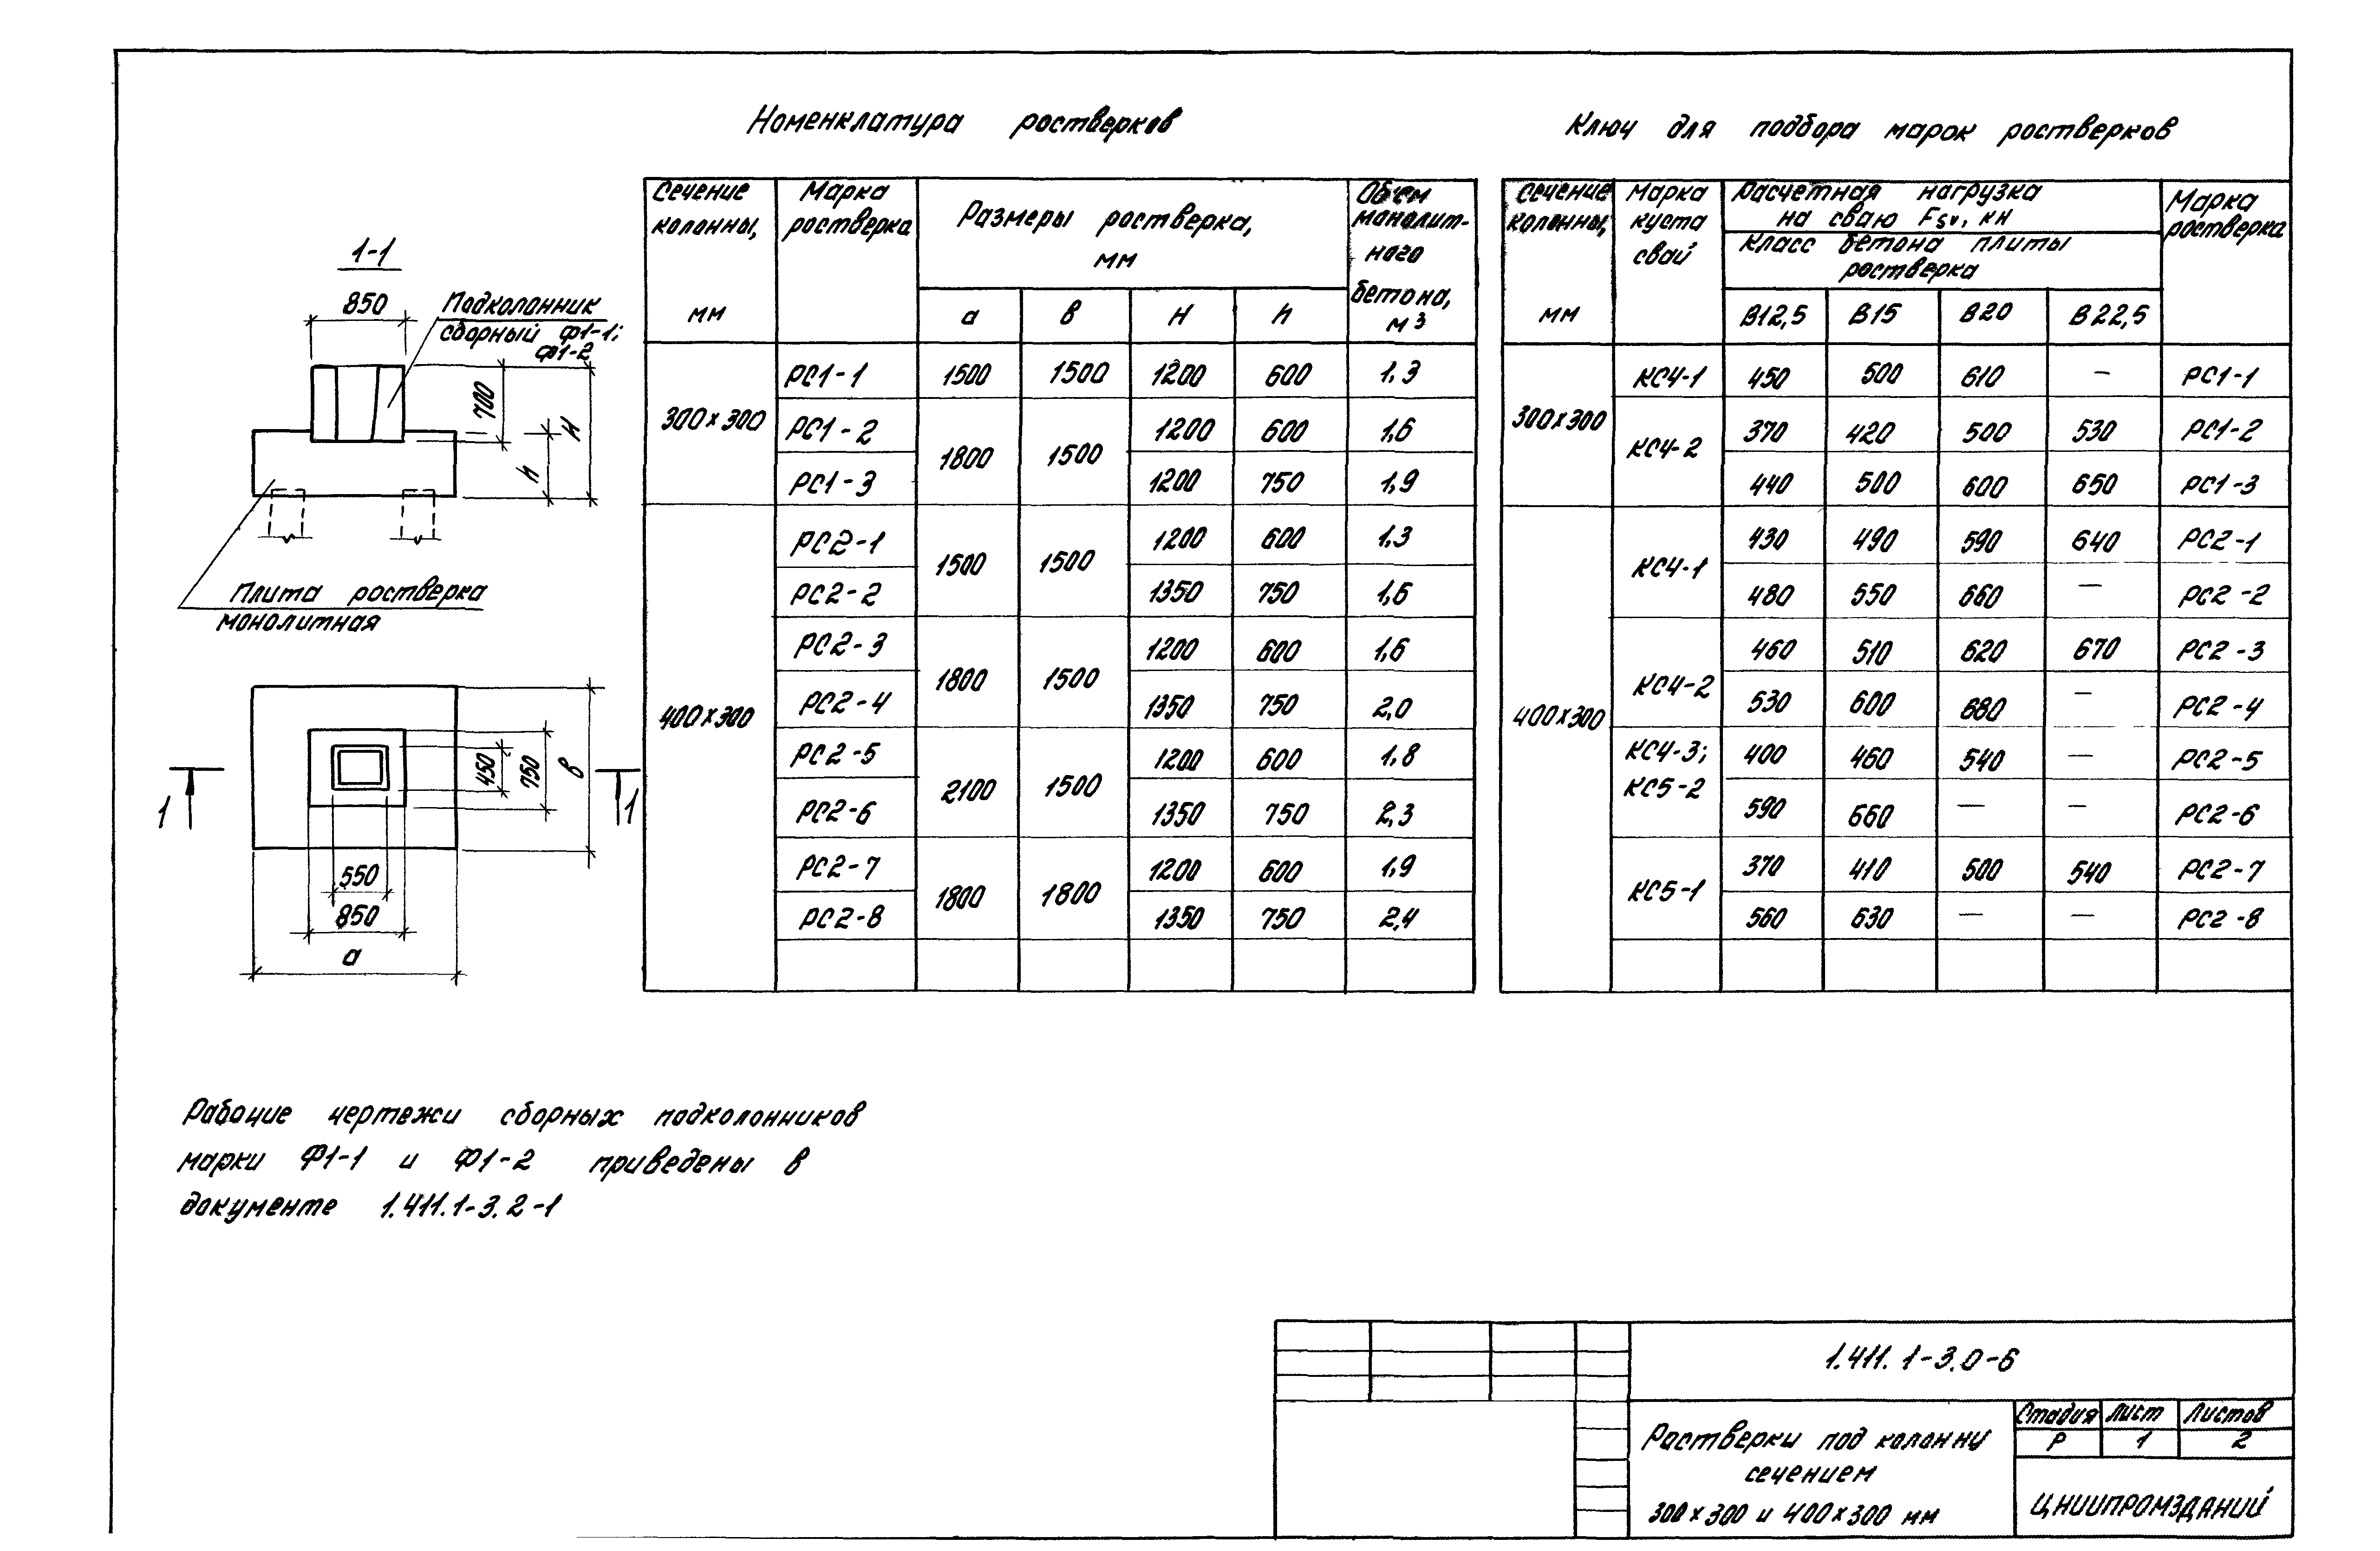 Номенклатура ростверков
Ключ для подбора марок ростверков
1-1
850
Подколонник
сборный Ф1-1;
Ф1-2
700
H
h
Плита ростверка
монолитная
450
750
в
1
1
550
850
а
Сечение колонны, мм
Марка ростверка
Размеры ростверка, мм
Объем монолитного бетона, м³
а в H h
300х300
РС1-1 1500 1500 1200 600 1,3
РС1-2 1800 1500 1200 600 1,6
РС1-3 1200 750 1,9
400х300
РС2-1 1500 1500 1200 600 1,3
РС2-2 1350 750 1,6
РС2-3 1800 1500 1200 600 1,6
РС2-4 1350 750 2,0
РС2-5 2100 1500 1200 600 1,8
РС2-6 1350 750 2,3
РС2-7 1800 1800 1200 600 1,9
РС2-8 1350 750 2,4
Сечение колонны, мм
Марка куста свай
Расчетная нагрузка
на сваю Fsv, кН
Класс бетона плиты
ростверка
В12,5 В15 В20 В22,5
Марка ростверка
300х300
КС4-1 450 500 610 — РС1-1
КС4-2 370 420 500 530 РС1-2
440 500 600 650 РС1-3
400х300
КС4-1 430 490 590 640 РС2-1
480 550 660 — РС2-2
КС4-2 460 510 620 670 РС2-3
530 600 680 — РС2-4
КС4-3; КС5-2 400 460 540 — РС2-5
590 660 — — РС2-6
КС5-1 370 410 500 540 РС2-7
560 630 — — РС2-8
Рабочие чертежи сборных подколонников
марки Ф1-1 и Ф1-2 приведены в
документе 1.411.1-3.2-1
1.411.1-3.0-6
Ростверки под колонну
сечением
300х300 и 400х300 мм
Стадия Лист Листов
Р 1 2
ЦНИИПРОМЗДАНИЙ